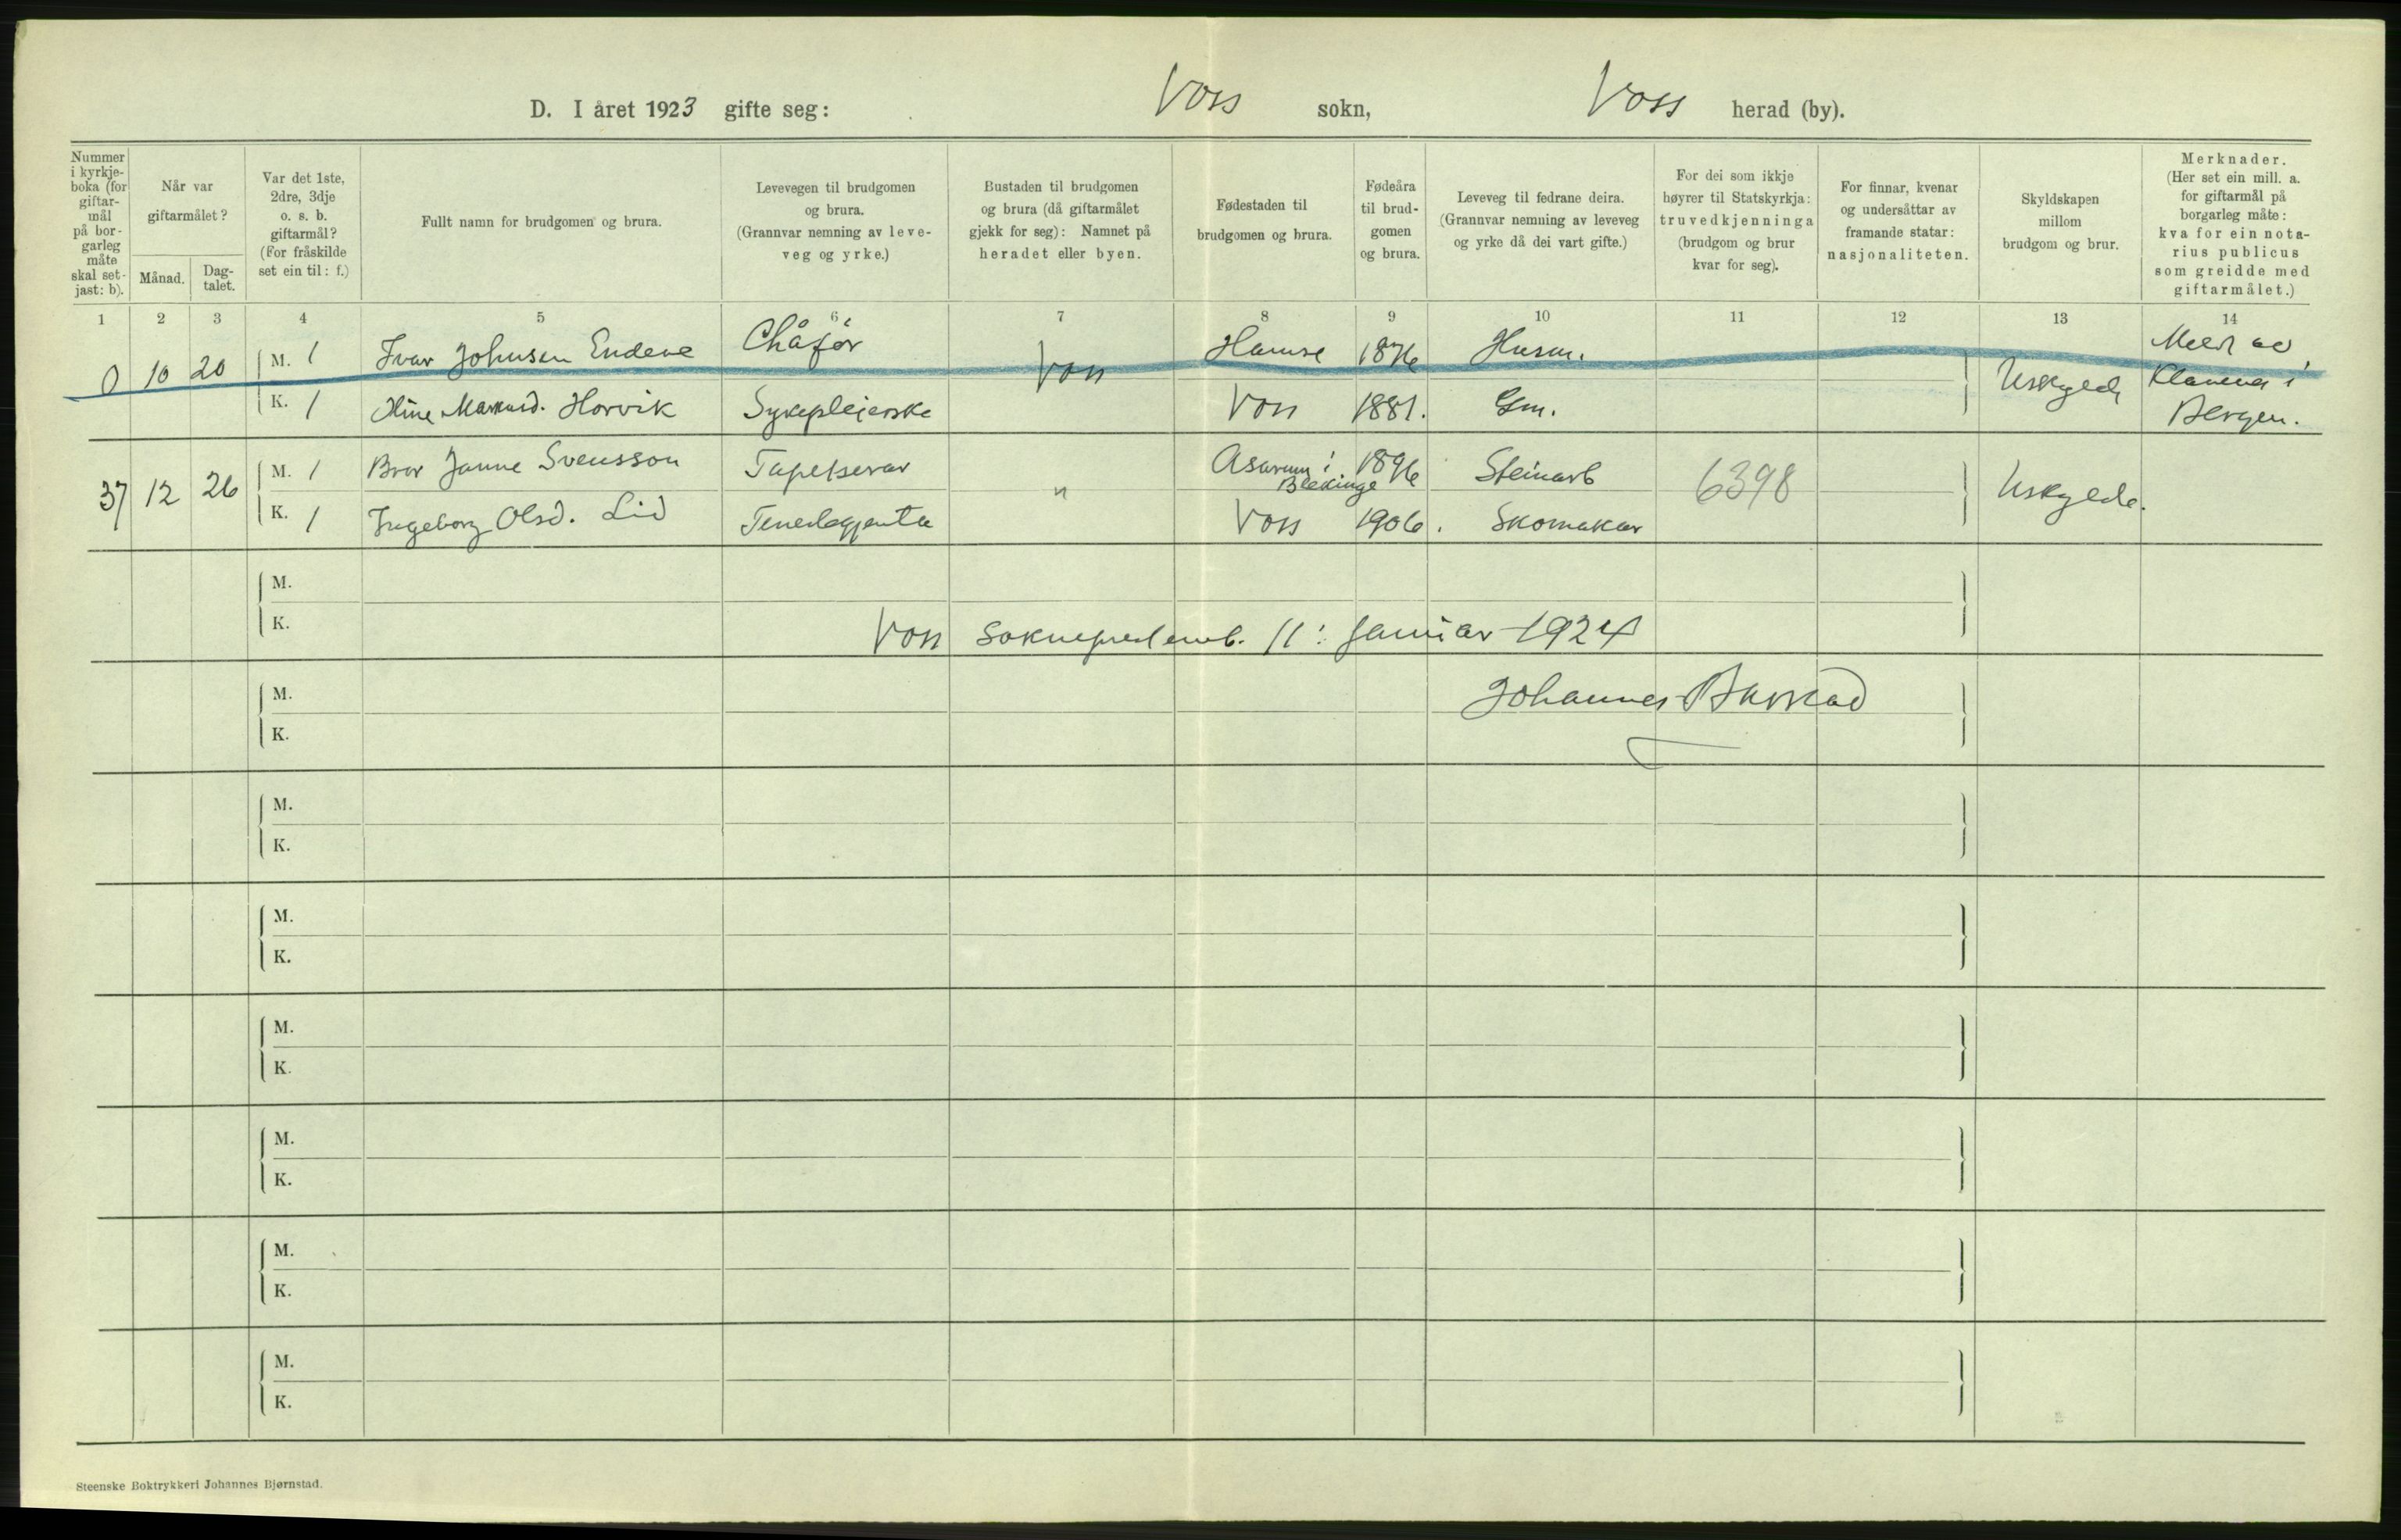 D. I året 1923 gifte seg: Voss sokn, Voss herad (by).
Nummer i kyrkje- boka (for giftar- mål på bor- garleg måte skal set- jast: b).
Når var giftarmålet?
Månad.
Dag- talet.
Var det 1ste, 2dre, 3dje o. s. b. giftarmål? (For fråskilde set ein til: f.)
Fullt namn for brudgomen og brura.
Levevegen til brudgomen og brura. (Grannvar nemning av leve- veg og yrke.)
Bustaden til brudgomen og brura (då giftarmålet gjekk for seg): Namnet på heradet eller byen.
Fødestaden til brudgomen og brura.
Fødeåra til brud- gomen og brura.
Leveveg til fedrane deira. (Grannvar nemning av leveveg og yrke då dei vart gifte.)
For dei som ikkje høyrer til Statskyrkja: truvedkjenninga (brudgom og brur kvar for seg).
For finnar, kvenar og undersåttar av framande statar: nasjonaliteten.
Skyldskapen millom brudgom og brur.
Merknader. (Her set ein mill. a. for giftarmål på borgarleg måte: kva for ein nota- rius publicus som greidde med giftarmålet.)
1 2 3 4 5 6 7 8 9 10 11 12 13 14
0 10 20 M. 1 Ivar Johnsen Endeve Chåfør Voss Hamre 1876 Husm. Uskyld Meld av Klavenes i Bergen.
K. 1 Markusd. Horvik Sykepleierske Voss 1881. Gm.
37 12 26 M. 1 Bror Janne Svensson Tapetserar " Asarum i Blekinge 1896 Steinarb 6398 Uskylde.
K. 1 Ingeborg Olsd. Lid Tenestegjenta Voss 1906. Skomakar
M.
K.
Voss Sokneprestemb. 11: Januar 1924
M.
Johannes Barstad
K.
M.
K.
M.
K.
M.
K.
M.
K.
M.
K.
M.
K.
Steenske Boktrykkeri Johannes Bjørnstad.